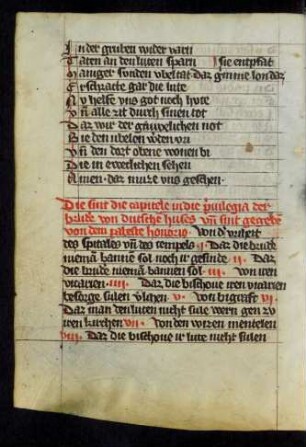 In der gruben wider varn
Taten an den luten sparn sie entpfat
Maniger sonden vbeltat
Erschracte gar die lute
Nv helfe vns got noch hvte
Vñ alle zit durch sinen tot
Daz wir der not
Bie den vbelon
Vñ den dort obene wonen bi
Die in ewerlichen sehen
Amen daz mvze vns geschen
Die sint die capitele in die p̃uilegia der
brude von dutsche huses vñ sint gegebē
von dem pabeste honorio. Von d' vriheit
des spitales vñ des tempels I Daz die brud̾e
niemā bannē sol noch ir gesinde II Daz
die brude niemā bannen sol III Von iren
vicarien IIII Daz die bischoue iren vicarien
besorge sulen V von bigraft VI
Daz man den luten nicht sule wern zv
iren kirchen VII Von den wizen mentelen
VIII Daz die bischoue ir lute nicht sulen